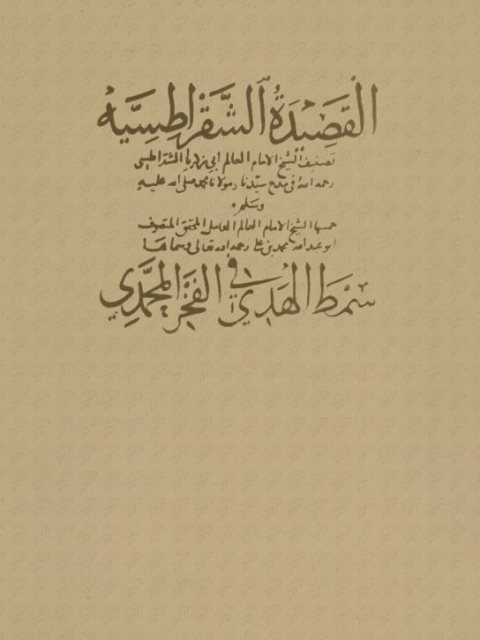 القَصِيدَةُ الشُّقْرَاطِسِيَّه
تصنيف الشيخ الامام العالم ابي زكريا الشقراطسي
رحمه الله في مدح سيدنا ومولانا محمد صلى الله عليه
وسلم
خمسها الشيخ الامام العالم العامل المحقق المتصرف
ابو عبد الله محمد بن علي رحمه الله تعالى وسماها
سِمْطَ الهَدْيِ في الفَخْرِ المُحَمَّدِي